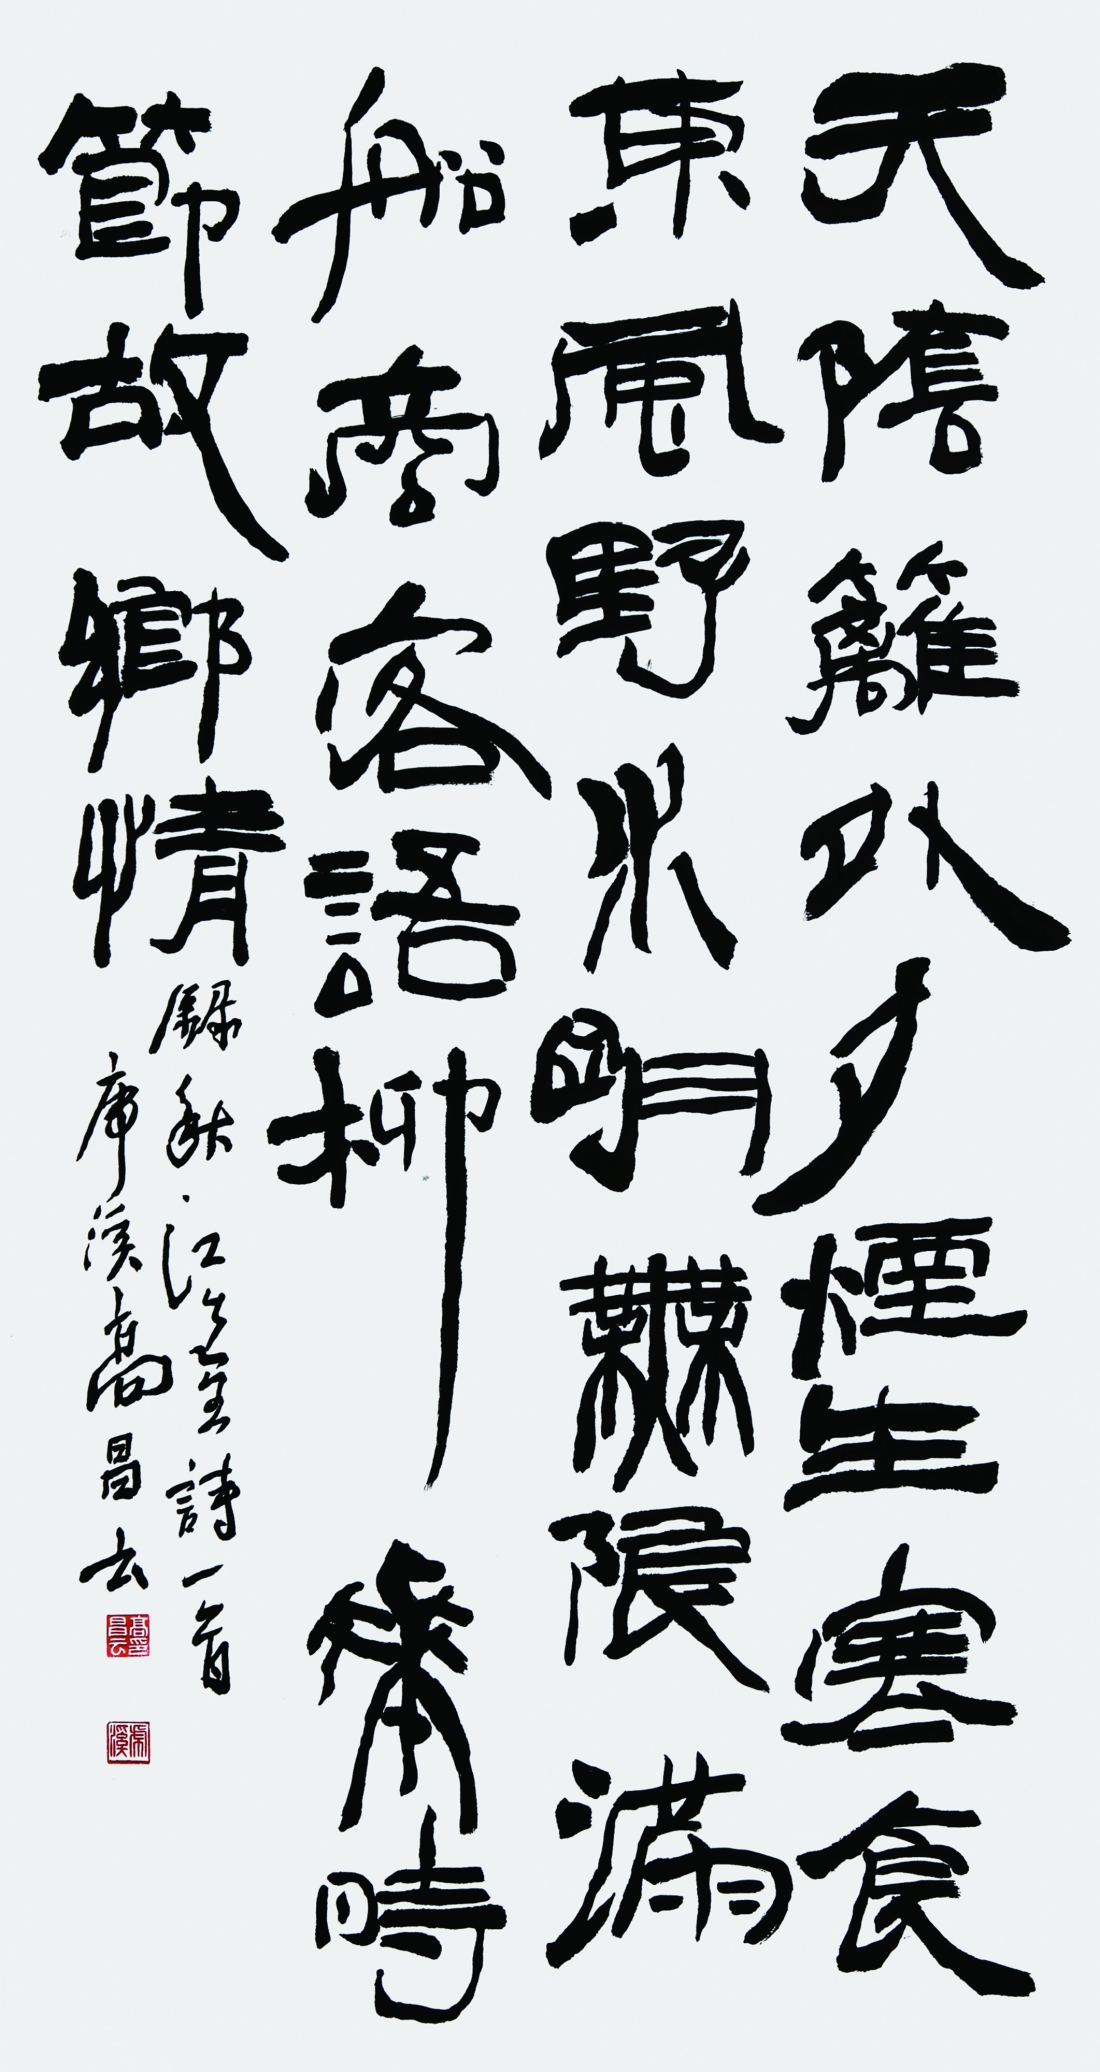 天陰籬外夕煙生寒食
東風野水明無限滿
船商客語柳華時
節故鄉情
錄秋江詩一首
虎溪高昌云
高昌云印
虎溪